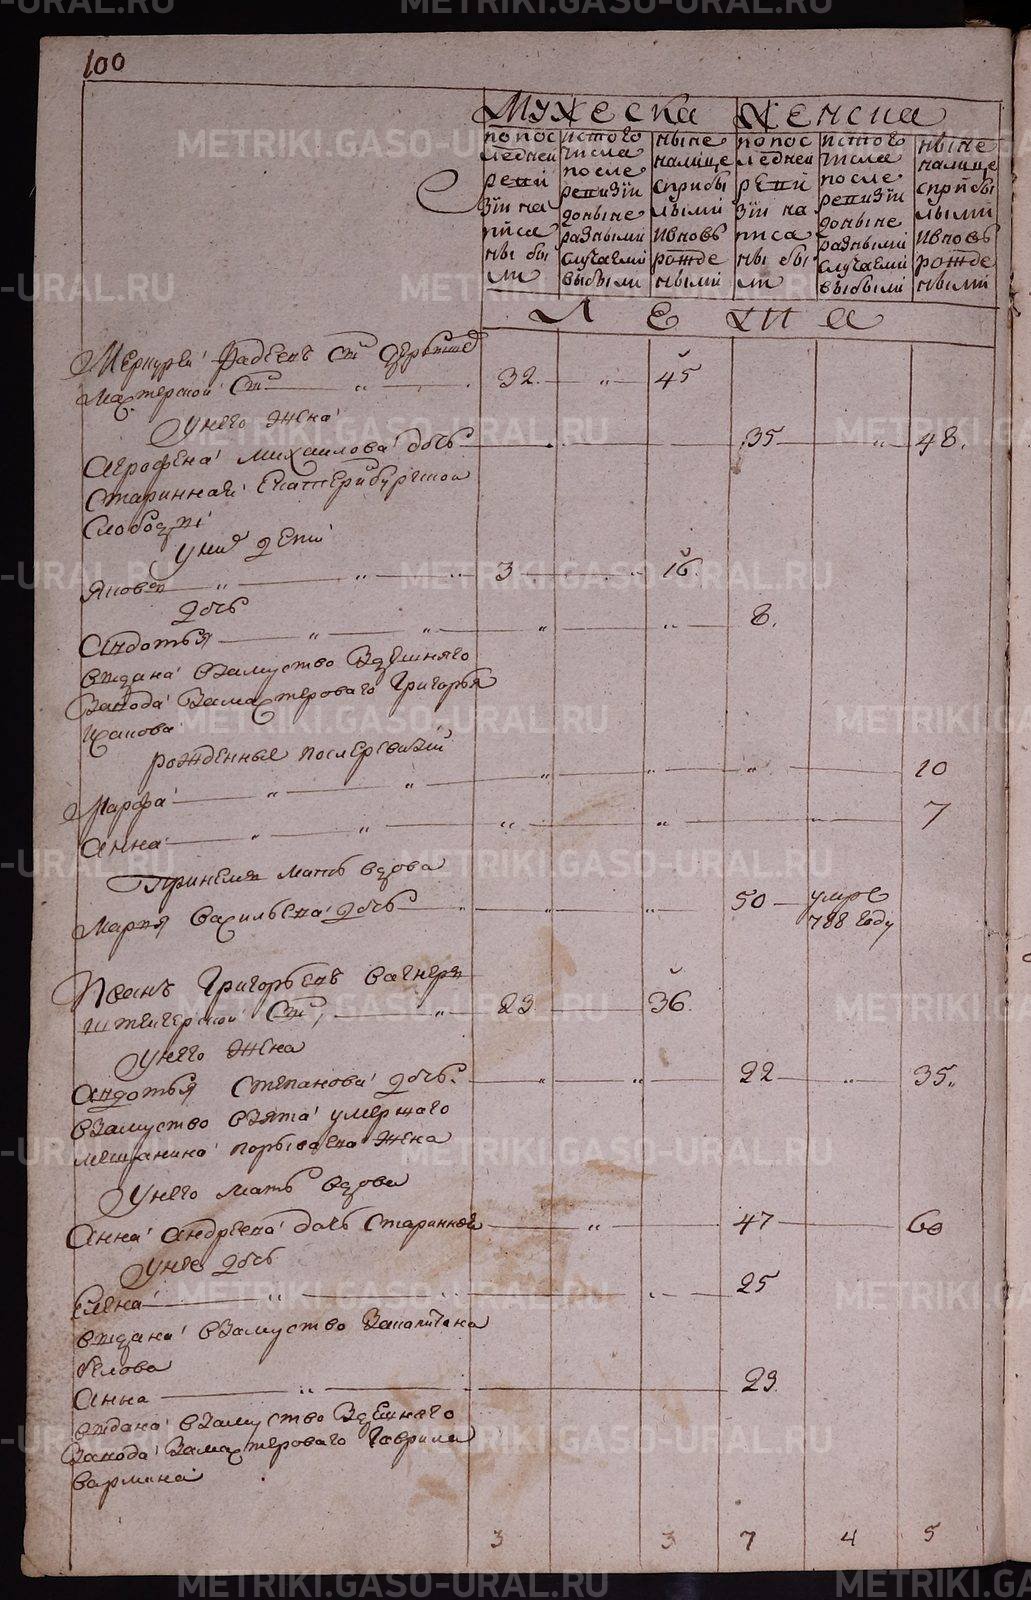 100
Мужеска Женска
по последней ревизии написаны были
из того числа после ревизии до ныне разными случаеми выбыли
ныне налице с прибылыми и вновь рожденными
по последней ревизии написаны были
из того числа после ревизии до ныне разными случаеми выбыли
ныне налице с прибылыми и вновь рожденными
Лета
Меркурей Фадеевъ сынъ
Мастерской сынъ 32 45
У него жена
Агрофена Михаилова дочь 35 48
Старинная Екатеринбургской
Слободы
У них дети
Яков 3 16
дочь
Авдотья 8
Выдана взамуство Здешняго
Завода За мастероваго Григорья
Рожденные после ревизии
Марфа 10
Анна 7
мать вдова
Мария Васильева дочь 50 умре 788 году
Иванъ Григорьевъ сынъ
Штейгерской сынъ 23 36
У него жена
Авдотья Степанова дочь 22 35
Взамуство взята умершаго
мещанина жена
У него мать вдова
Анна Андреева дочь Старинная 47 60
У нее дочь
Елена 25
Выдана взамуство За
Белова
Анна 23
Выдана взамуство Здешняго
Завода За мастероваго Гаврила
3 3 7 4 5
METRIKI.GASO-URAL.RU